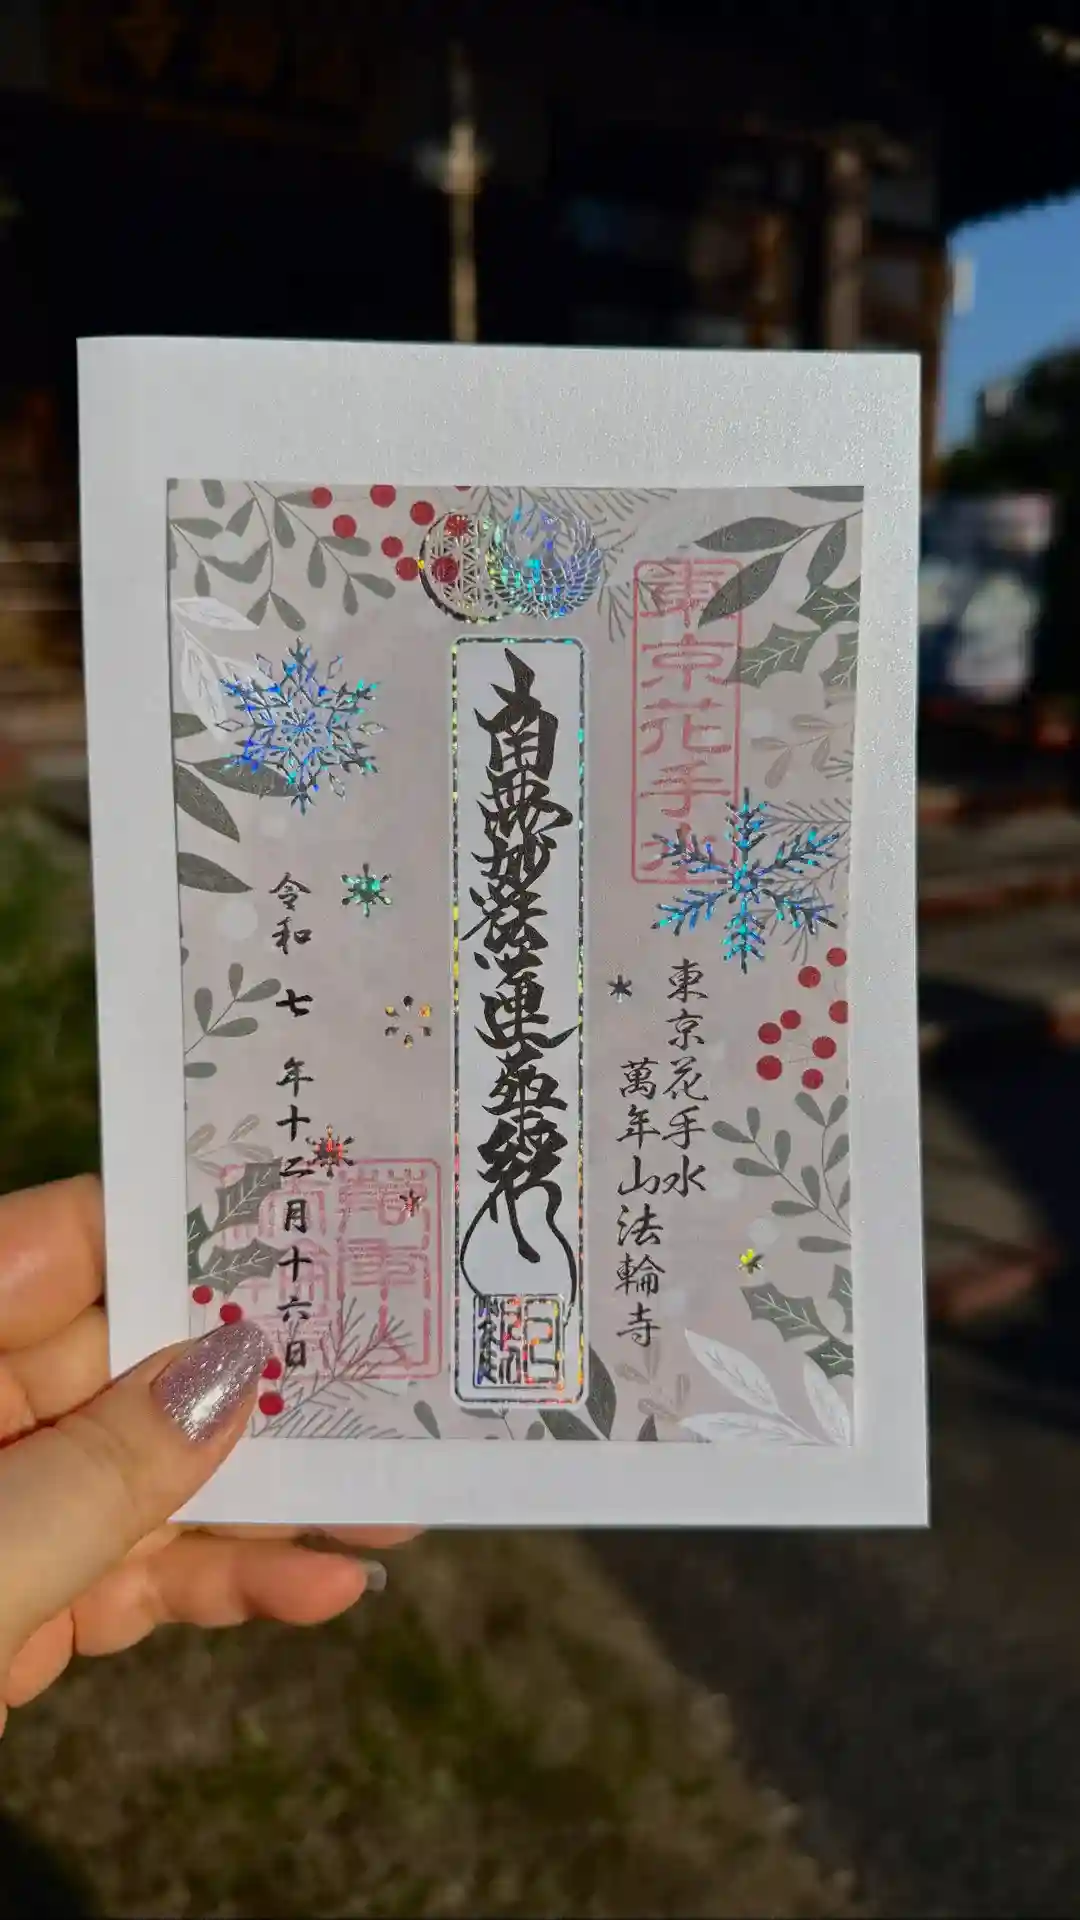 東京花手水
東京花手水
萬年山法輪寺
南無妙法蓮華経
令和七年十二月十六日
萬年山
法輪寺